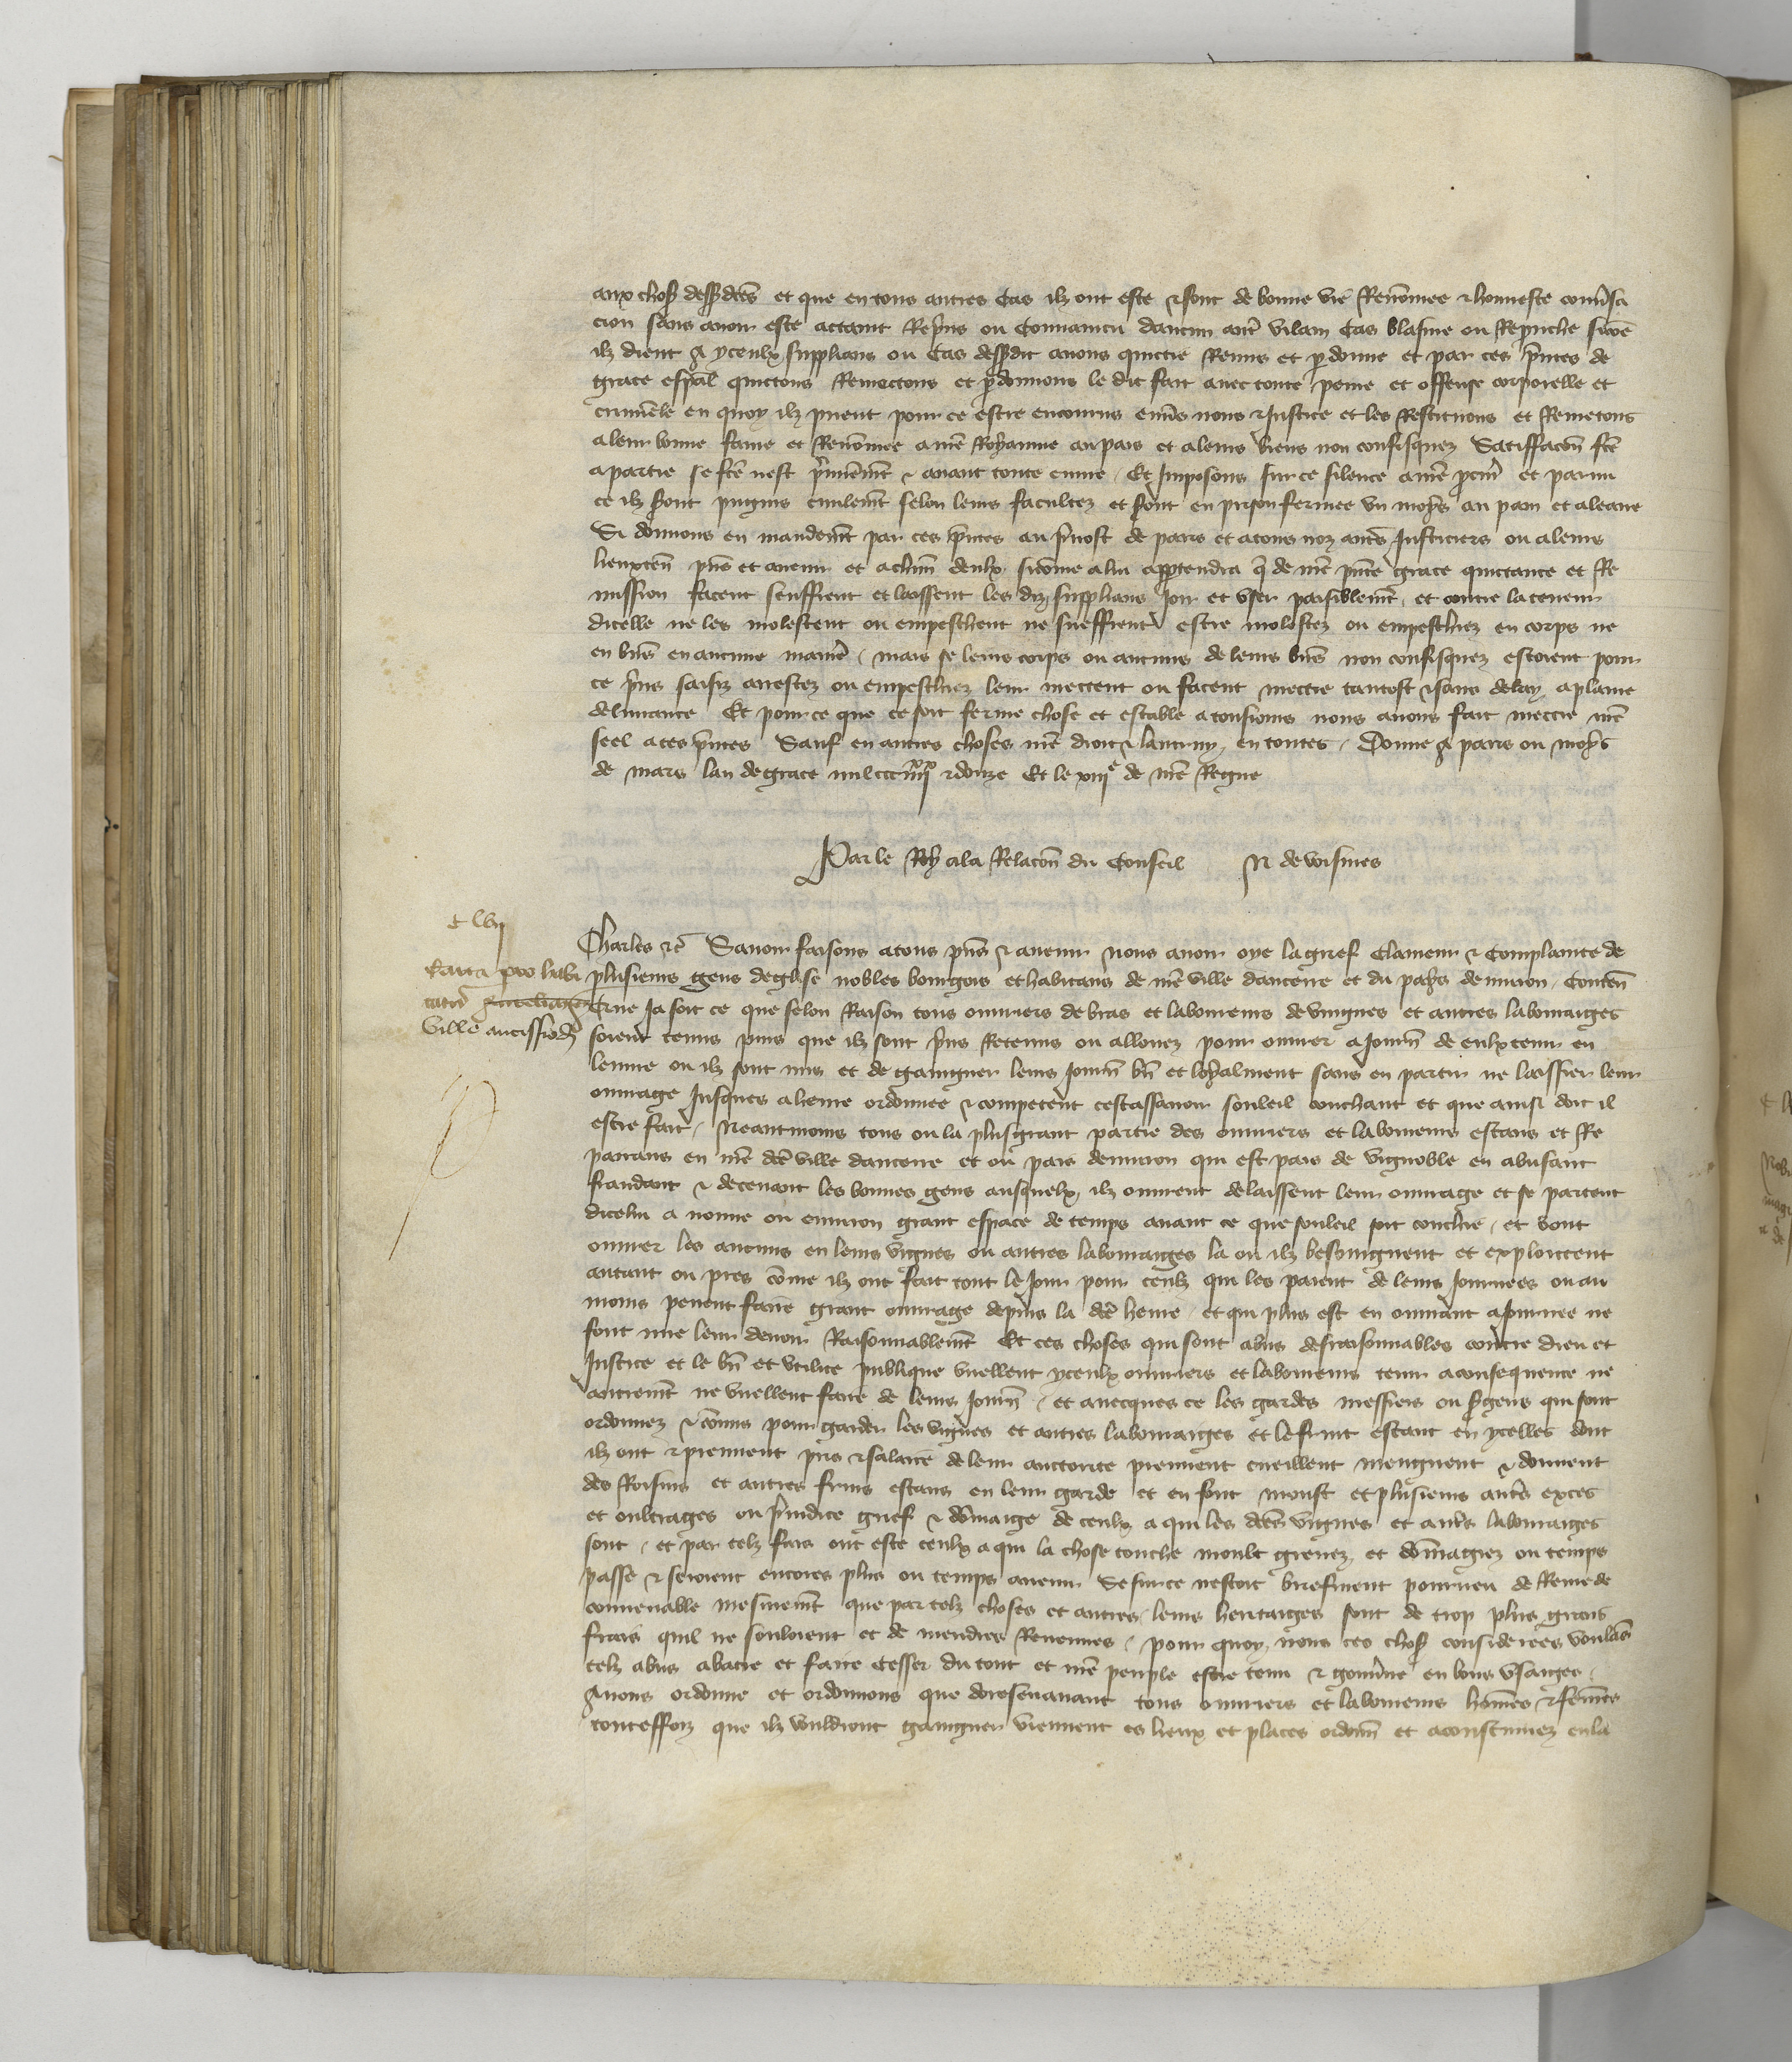 aux choses dessdctes et que en tous autres cas ilz ont este et sont de bonne vie Renommee et honneste conversa
cion sans avoir este actaint Reprins ou Convaincu daucun autre vilain Cas blasme ou Reprouche sicome
ilz dient A yceulx supplians ou Cas dessusdit avons quictie Remis et pardonne et par ces presentes de
grace especial quictons Remectons et pardonnons le dit fait avec toute peine et offense corporelle et
criminele en quoy ilz pevent pour ce estre encourus envers nous et Justice et les Restituons et Remetons
a leur bonne fame et Renommee a nostre Royaume au pais et a leurs biens non confisquez Satiffacion fcte
a partie se fcte nest premierement et avant toute euvre Et Imposons sur ce silence a nostre procureur et parmi
ce ilz seront pugnis civilement selon leurs facultez et seront en prison fermee un moys au pain et a leaue
Si donnons en mandement par ces presentes au prevost de paris et a tous noz autres Justiciers ou a leurs
lieuxten presens et avenir et a chascun deulx sicomme a lui appartendra que de nostre presente grace quictance et Re
mission facent seuffrent et laissent les diz supplians Joir et user paisiblement et contre la teneur
dicelle ne les molestent ou empeschent ne sueffrent estre molestez ou empeschiez en corps ne
en biens en aucune maniere mais se leurs corps ou aucuns de leurs biens non confisquez estoient pour
ce prins saisiz arrestez ou empeschiez leur mectent ou facent mectre tantost et sans delay a plaine
delivrance Et pour ce que ce soit ferme chose et estable a tousjours nous avons fait mectre nostre
seel a ces presentes Sauf en autres choses nostre droit et lautruy en toutes Donne A paris ou moys
de mars lan de grace mil ccc iiiixx et douze Et le xiiie de nostre Regne
Par le Roy a la Relacion du Conseil N de voisines
C lvii
Charles etc Savoir faisons a tous presens et avenir nous avons oye la grief Clameur et Complainte de
Carta pro habi
plusieurs gens deglise nobles bourgois et habitans de nostre ville daucerre et du pays denviron Conten
tatoribus
Que Ja soit ce que selon Raison tous ouvriers de bras et laboureurs de vingnes et autres labouraiges
ville autissiod
soient tenus puis que ilz sont prins Retenus ou allouez pour ouvrer a Journ de eulx tenir en
leuvre ou ilz sont mis et de gaingner leurs Journ bien et loyalment sans en partir ne laissier leur
ouvrage Jusques a heure ordonnee et competent cestassavoir souleil couchant et que ainsi doit il
estre fait Neantmoins tous ou la plus grant partie des ouvriers et laboureurs estans et Re
pairans en nostre dcte ville daucerre et ou pais denviron qui est pais de vignoble en abusant
fraudant et decevant les bonnes gens ausquelx ilz ouvrent delaissent leur ouvrage et se partent
dicelui a nonne ou environ grant espace de temps avant ce que souleil soit couchie et vont
ouvrer les aucuns en leurs vignes ou autres labouraiges la ou ilz besoingnent et exploictent
autant ou pres comme ilz ont fait tout le Jour pour ceulx qui les paient de leurs Journees ou au
moins pevent faire grant ouvrage depuis la dcte heure et qui plus est en ouvrant a Journee ne
font mie leur devoir Raisonnablement Et ces choses qui sont abus desraisonnables contre dieu et
Justice et le bien et utilite publique vuellent yceulx ouvriers et laboureurs tenir a consequence ne
autrement ne vuellent faire de leurs Journ et avecques ce les gardes messiers ou sergens qui sont
ordonnez et commis pour garder les vignes et autres labouraiges et le fruit estant en ycelles dont
ilz ont et prennent pris et salaire de leur auctorite prennent cueillent menguent et donnent
des Roisins et autres fruis estans en leur garde et en font moust et plusieurs autres exces
et oultrages ou prejudice grief et dommaige de ceulx a qui les dctes vignes et autres labouraiges
sont et par telz fais ont este ceulx a qui la chose touche moult grevez et dommagiez ou temps
passe et seroient encores plus ou temps avenir Se sur ce nestoit briefment pourveu de Remede
convenable mesmement que par telz choses et autres leurs heritaiges sont de trop plus grans
frais quil ne souloient et de mendres Revenues pour quoy nous ces choses considerees voulans
telz abus abatre et faire Cesser du tout et nostre peuple estre tenu et gouverne en bons usaiges
Avons ordonne et ordonnons que doresenavant tous ouvriers et laboureurs hommes et femmes
touteffoiz que ilz vouldront gaingner viennent es lieux et places ordonn et acoustumez en la